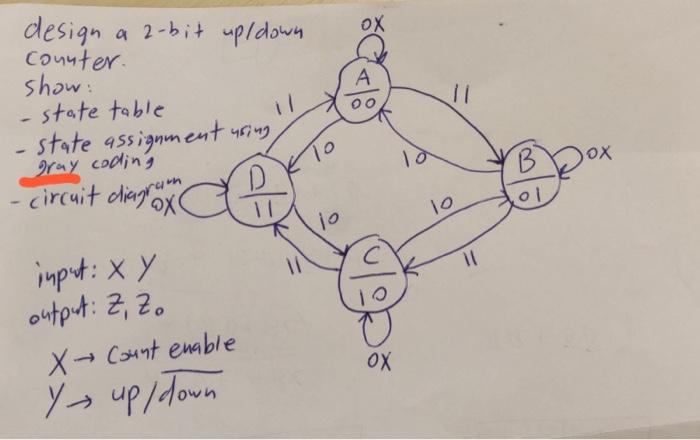 design a 2-bit up/down
counter.
show:
- state table
- state assignment using
gray coding
- circuit diagram
input: X Y
output: Z1 Z0
X → Count enable
Y → up/down
0X
A
00
11
11
10
10
D
11
0X
B
01
0X
10
10
11
11
C
10
0X